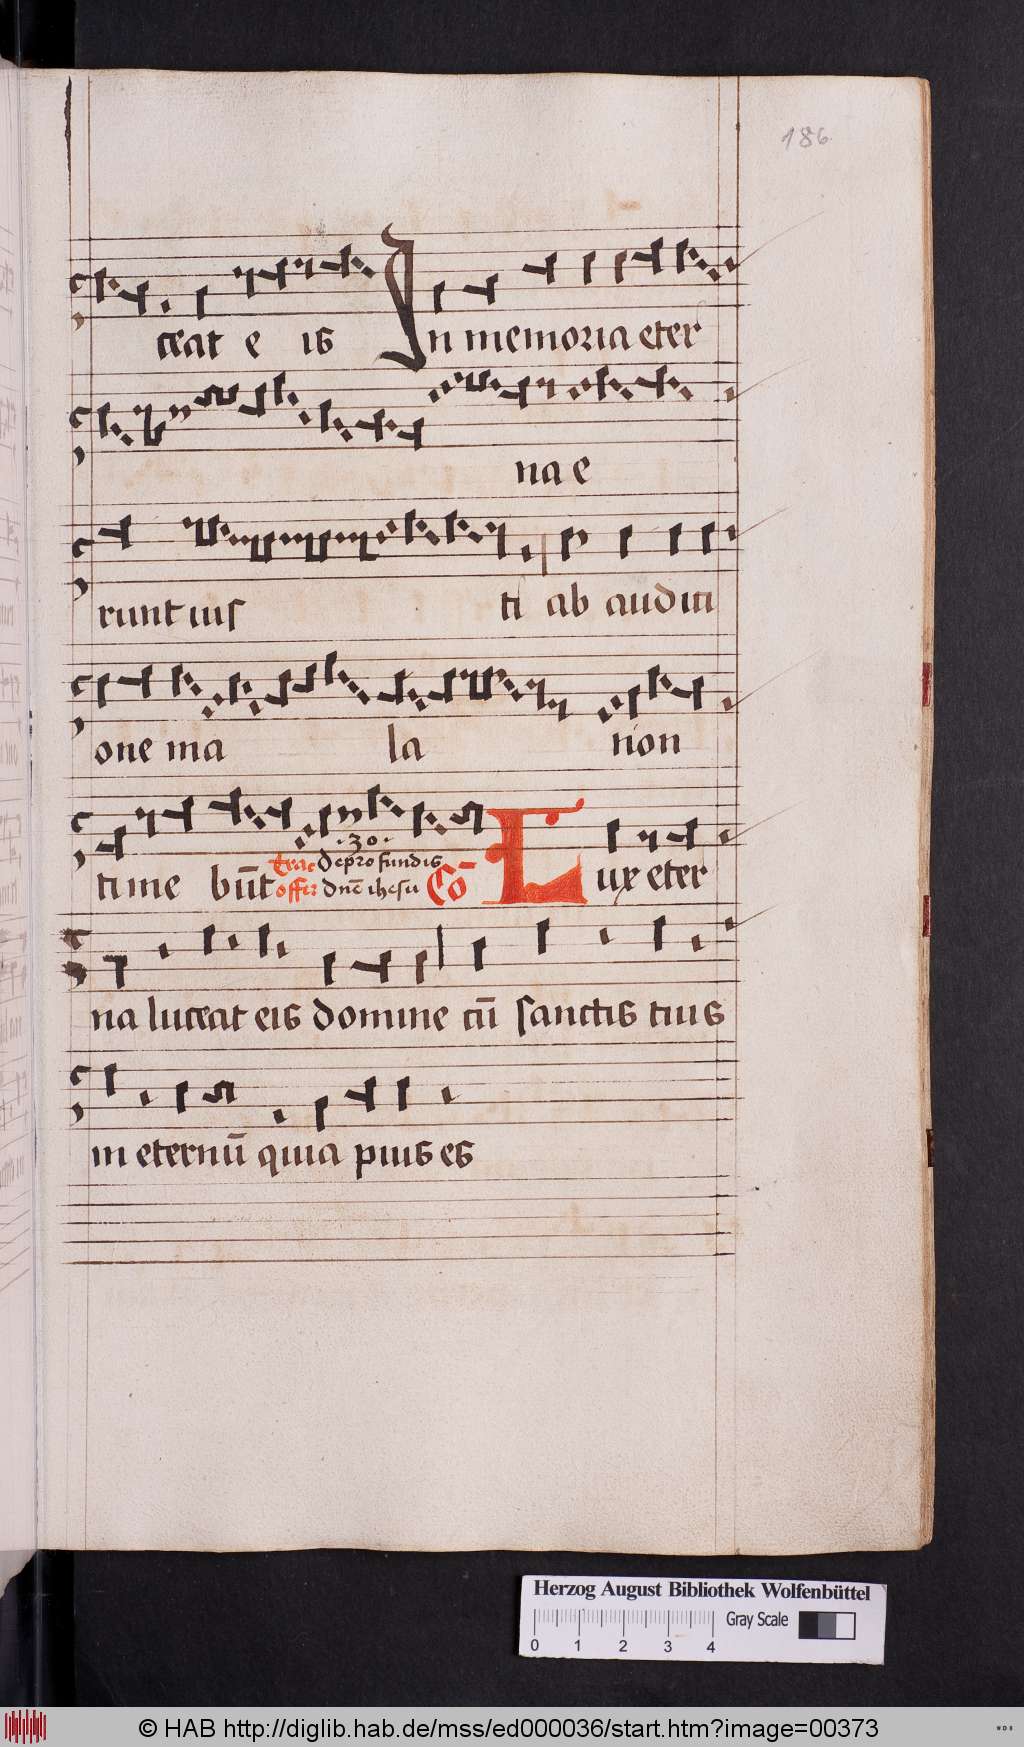 186
ceat e is In memoria eter
na e
runt ius ti ab auditi
one ma la non
time būt trac de profundis .30. Lux eter
offir dnē ihesu Cō
na luceat eis domine cū sanctis tuis
in eternū quia pius es
Herzog August Bibliothek Wolfenbüttel
0 1 2 3 4 Gray Scale
© HAB http://diglib.hab.de/mss/ed000036/start.htm?image=00373